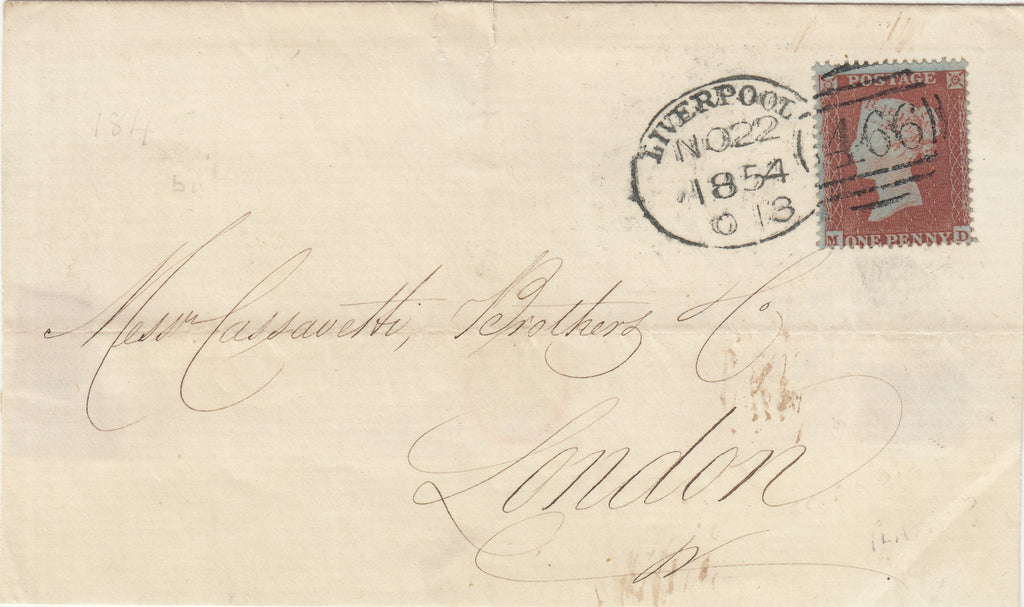 LIVERPOOL
NO22
1854
O 13
466
POSTAGE
M ONE PENNY D
184
Messrs Cassavetti, Brothers & Co
London